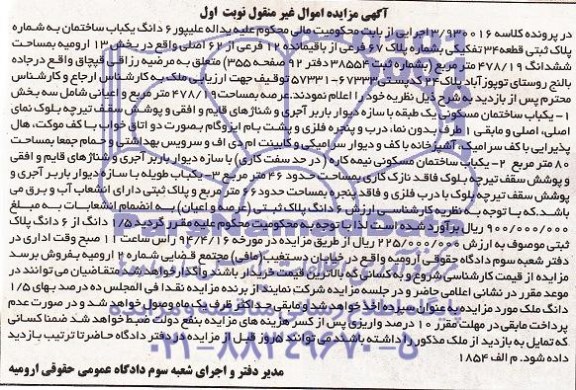 آگهی مزایده اموال غیر منقول نوبت اول
در پرونده کلاسه ۳/۹۳۰۰۱۶ اجرایی از بابت محکومیت مالی محکوم علیه یداله علیپور ۶ دانگ یکباب ساختمان به شماره
پلاک ثبتی قطعه ۳۴ تفکیکی بشماره پلاک ۶۷ فرعی از باقیمانده ۱۲ فرعی از ۶۲ اصلی واقع در بخش ۱۳ ارومیه بمساحت
ششدانگ ۴۷۸/۱۹ متر مربع (بشماره ثبت ۳۸۵۵۴ دفتر ۹۲ صفحه ۳۵۵) متعلق به مرضیه رزاقی قپچاق واقع در جاده
بالنج روستای توپوز آباد پلاک ۳۴ کدپستی ۶۷۳۳۳-۵۷۳۳۱ توقیف جهت ارزیابی ملک به کارشناس ارجاع و کارشناس
محترم پس از بازدید به شرح ذیل نظریه خود را اعلام نمودند. عرصه بمساحت ۴۷۸/۱۹ متر مربع و اعیانی شامل سه بخش
۱- یکباب ساختمان مسکونی یک طبقه با سازه دیوار باربر آجری و شناژهای قایم و افقی و پوشش سقف تیرچه بلوک نمای
اصلی، اصلی و مابقی ۱ طرف بدون نما، درب و پنجره فلزی و پشت بام ایزوگام بصورت دو اتاق خواب با کف موکت، هال
پذیرایی با کف سرامیک، آشپزخانه با کف و دیوار سرامیکی و کابینت ام دی اف و سرویس بهداشتی و حمام جمعا بمساحت
۸۰ متر مربع ۲- یکباب ساختمان مسکونی نیمه کاره (در حد سفت کاری) با سازه دیوار باربر آجری و شناژهای قایم و افقی
و پوشش سقف تیرچه بلوک فاقد نازک کاری بمساحت حدود ۴۶ متر مربع ۳- یکباب طویله با سازه دیوار باربر آجری و
پوشش سقف تیرچه بلوک با درب فلزی و فاقد پنجره بمساحت حدود ۴۶ متر مربع و پلاک ثبتی دارای انشعاب آب و برق می
باشد. که با توجه به نظریه کارشناسی ارزش ۶ دانگ پلاک ثبتی (عرصه و اعیان) به انضمام انشعابات به مبلغ
۹۰۰/۰۰۰/۰۰۰ ریال برآورد شده است لذا با توجه به محکومیت محکوم علیه مقرر گردید ۱/۵ دانگ از ۶ دانگ پلاک
ثبتی موصوف به ارزش ۲۲۵/۰۰۰/۰۰۰ ریال از طریق مزایده در مورخه ۹۴/۴/۱۶ راس ساعت ۱۱ صبح وقت اداری در
دفتر شعبه سوم دادگاه حقوقی ارومیه واقع در خیابان دستغیب (مافی) مجتمع قضایی شماره ۲ ارومیه بفروش برسد
مزایده از قیمت کارشناسی شروع و به کسانی که بالاترین قیمت خریدار باشند واگذار خواهد شد متقاضیان می توانند در
موعد مقرر در نشانی اعلامی حاضر و در جلسه مزایده شرکت نمایند از برنده مزایده نقدا فی المجلس ده درصد بهای ۱/۵
دانگ ملک مورد مزایده به عنوان سپرده اخذ خواهد شد و مابقی حداکثر ظرف یک ماه وصول خواهد شد و در صورت عدم
پرداخت مابقی در مهلت مقرر ۱۰ درصد واریزی پس از کسر هزینه های مزایده بنفع دولت ضبط خواهد شد ضمنا کسانی
که تمایل به بازدید از ملک مذکور را داشته باشند می توانند ۵ روز قبل از مزایده در دفتر دادگاه حاضر تا ترتیب بازدید
داده شود. م الف ۱۸۵۴
مدیر دفتر و اجرای شعبه سوم دادگاه عمومی حقوقی ارومیه
۰۲۱-۸۸۳۴۹۶۷۰-۵